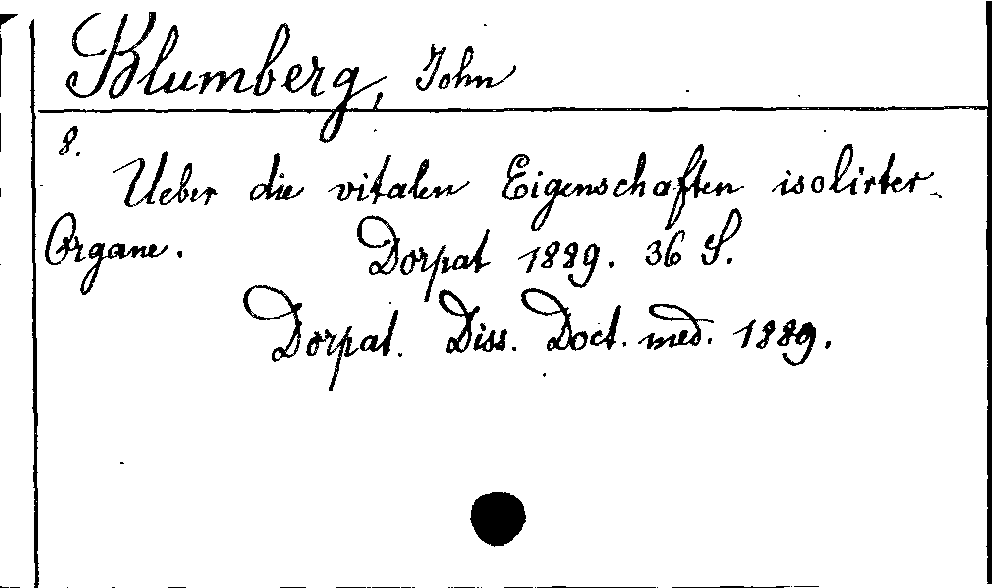 Blumberg, John
8.
Ueber die vitalen Eigenschaften isolirter
Organe. Dorpat 1889. 36 S.
Dorpat. Diss. Doct. med. 1889.